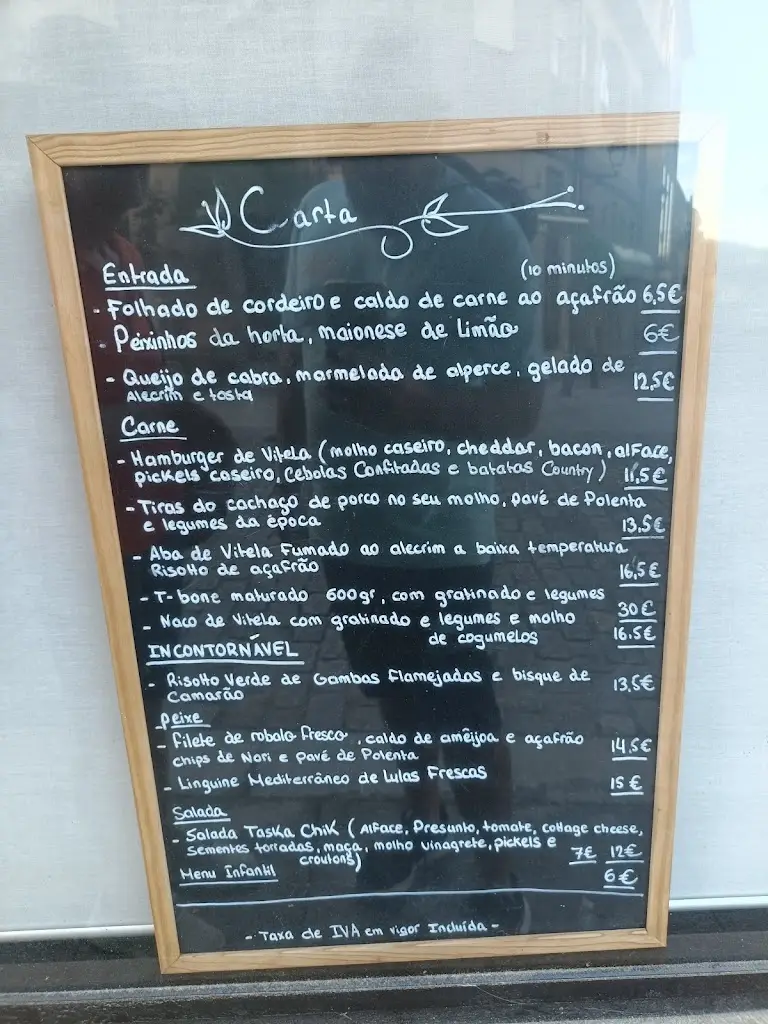 Carta
Entrada (10 minutos)
- Folhado de cordeiro e caldo de carne ao açafrão 6,5€
- Peixinhos da horta, maionese de limão 6€
- Queijo de cabra, marmelada de alperce, gelado de
Alecrim e tosta 12,5€
Carne
- Hamburger de Vitela (molho caseiro, cheddar, bacon, alface,
pickels caseiro, Cebolas Confitadas e batatas Country) 11,5€
- Tiras do cachaço de porco no seu molho, pavé de Polenta
e legumes da época 13,5€
- Aba de Vitela Fumado ao alecrim a baixa temperatura
Risotto de açafrão 16,5€
- T-bone maturado 600gr, com gratinado e legumes 30€
- Naco de Vitela com gratinado e legumes e molho
de cogumelos 16.5€
INCONTORNÁVEL
- Risotto Verde de Gambas Flamejadas e bisque de
Camarão 13,5€
Peixe
- Filete de robalo fresco, caldo de amêijoa e açafrão
chips de Nori e Pavé de Polenta 14,5€
- Linguine Mediterrâneo de Lulas Frescas 15€
Salada
- Salada Taska Chik (Alface, Presunto, tomate, cottage cheese,
Sementes torradas, maçã, molho vinagrete, pickels e
croutons) 7€ 12€
Menu Infantil 6€
- Taxa de IVA em vigor Incluída -